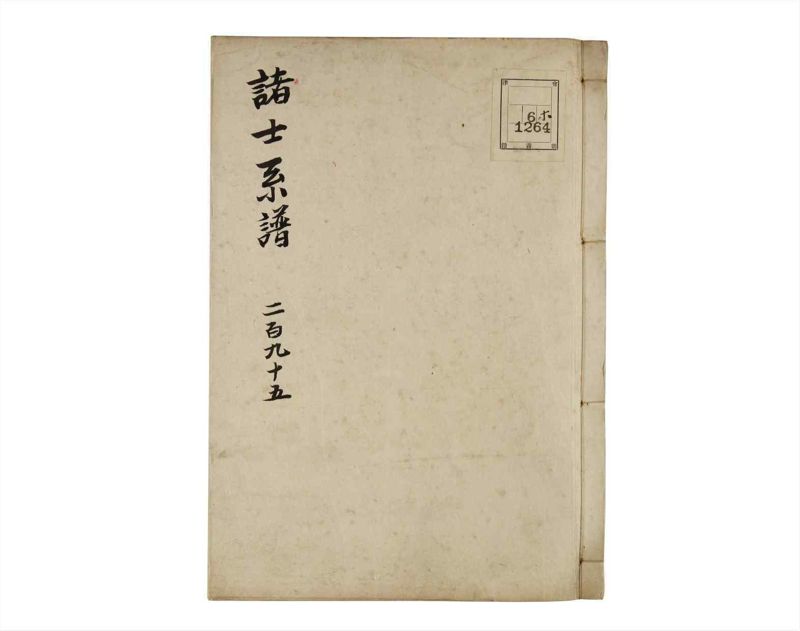 諸士系譜
二百九十五
6 ホ
1264